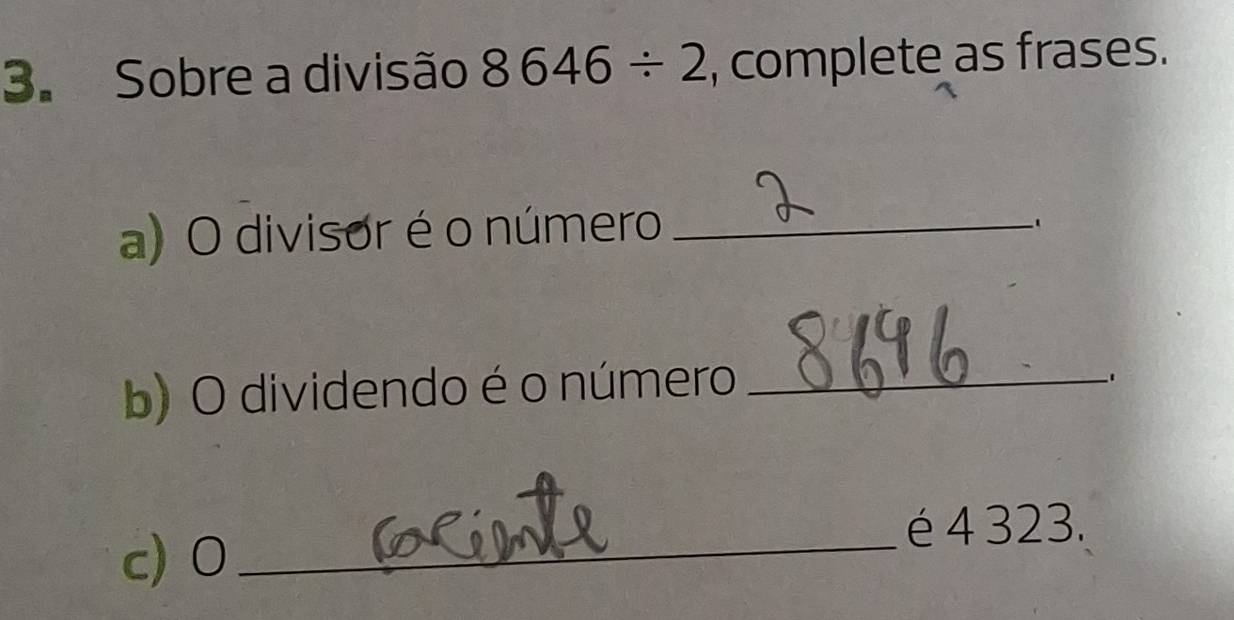 3. Sobre a divisão 8 646 ÷ 2, complete as frases.
a) O divisor é o número 2.
b) O dividendo é o número 8646.
c) O cociente é 4 323.